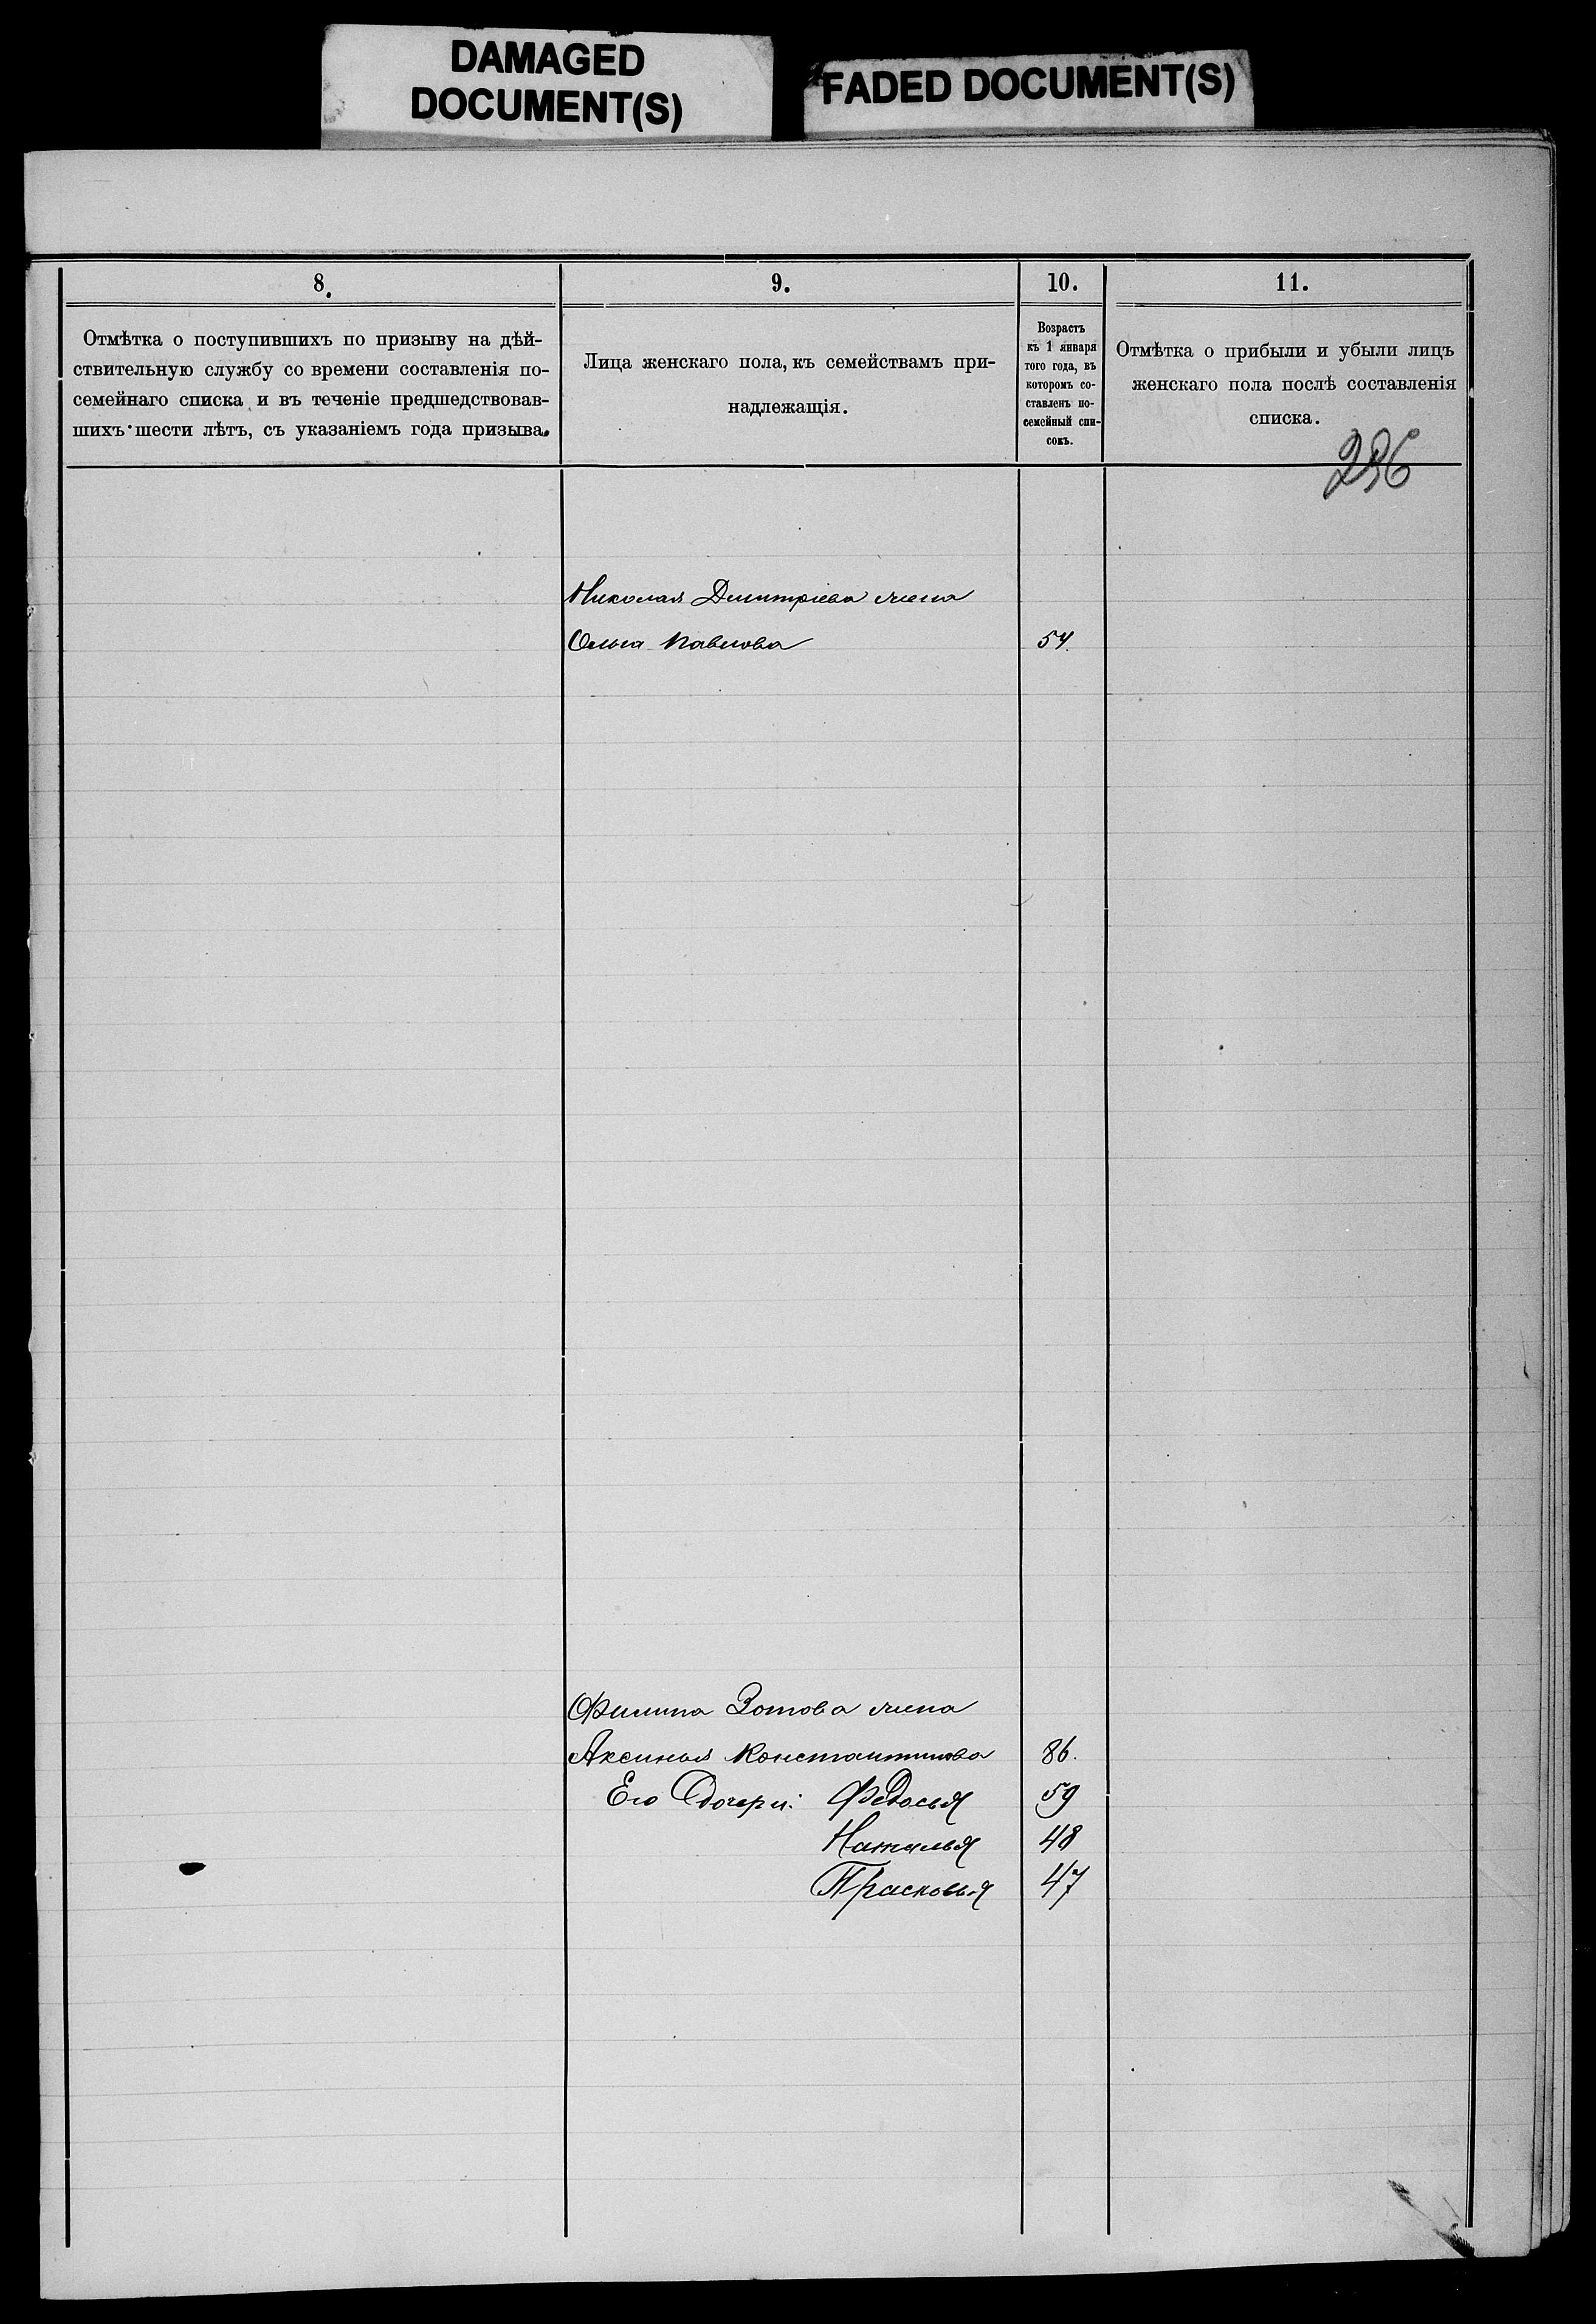 DAMAGED
DOCUMENT(S)
FADED DOCUMENT(S)
8.
9.
10.
11.
Отмѣтка о поступившихъ по призыву на дѣй-
ствительную службу со времени составленія по-
семейнаго списка и въ теченіе предшедствовав-
шихъ шести лѣтъ, съ указаніемъ года призыва.
Лица женскаго пола, къ семействамъ при-
надлежащія.
Возрастъ
къ 1 января
того года, въ
которомъ со-
ставленъ по-
семейный спи-
сокъ.
Отмѣтка о прибыли и убыли лицъ
женскаго пола послѣ составленія
списка.
Николая Дмитріева жена
Ольга Павлова 54.
Филипа Зотова жена
Аксинья Константинова 86.
Его Дочери: Федосья 59
Наталья 48
Прасковья 47